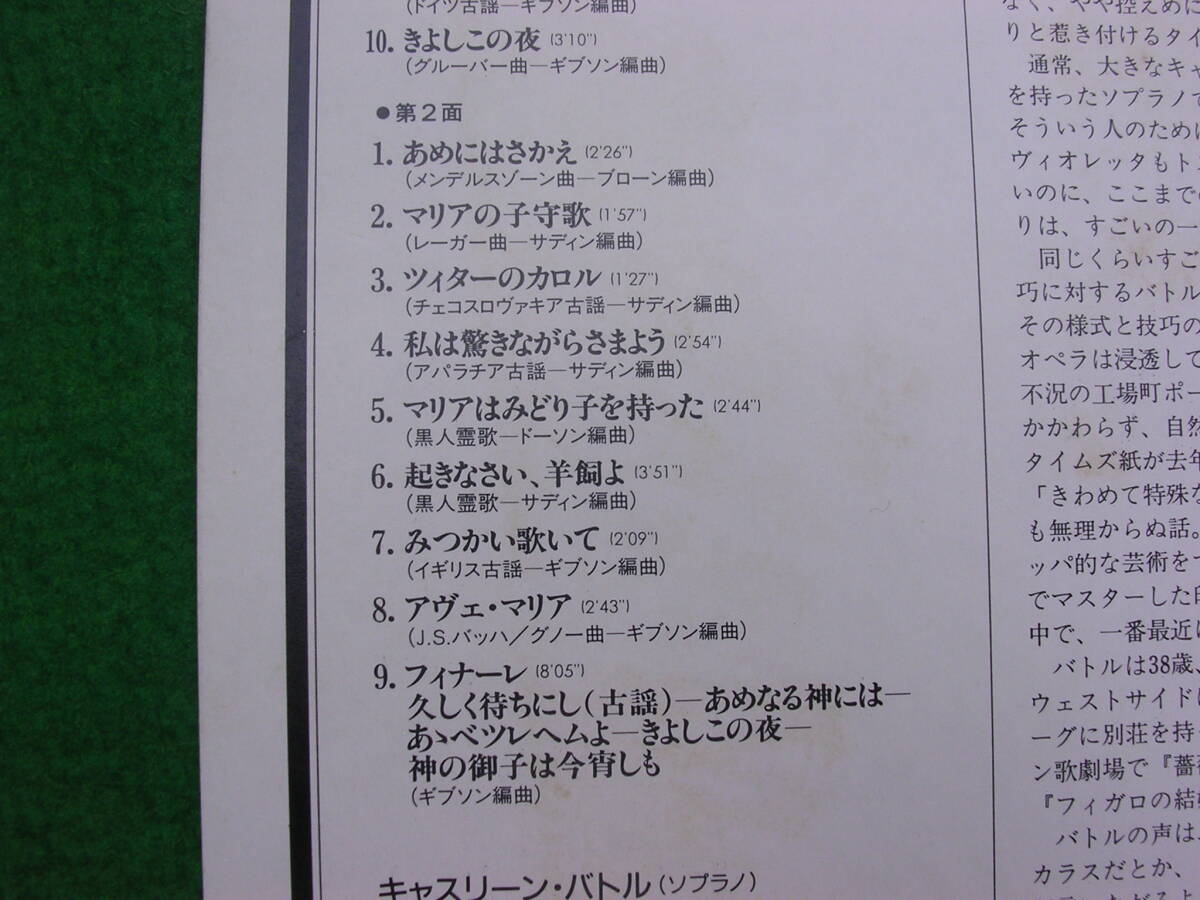 (ドイツ古謡—ギブソン編曲)
10. きよしこの夜 (3'10")
(グルーバー曲—ギブソン編曲)
●第2面
1. あめにはさかえ (2'26")
(メンデルスゾーン曲—ブローン編曲)
2. マリアの子守歌 (1'57")
(レーガー曲—サディン編曲)
3. ツィターのカロル (1'27")
(チェコスロヴァキア古謡—サディン編曲)
4. 私は驚きながらさまよう (2'54")
(アパラチア古謡—サディン編曲)
5. マリアはみどり子を持った (2'44")
(黒人霊歌—ドーソン編曲)
6. 起きなさい、羊飼よ (3'51")
(黒人霊歌—サディン編曲)
7. みつかい歌いて (2'09")
(イギリス古謡—ギブソン編曲)
8. アヴェ・マリア (2'43")
(J.S.バッハ/グノー曲—ギブソン編曲)
9. フィナーレ (8'05")
久しく待ちにし(古謡)—あめなる神には—
あゝベツレヘムよ—きよしこの夜—
神の御子は今宵しも
(ギブソン編曲)
キャスリーン・バトル(ソプラノ)
なく、やや控えめに
りと惹き付けるタイ
通常、大きなキャ
を持ったソプラノで
そういう人のために
ヴィオレッタもト
いのに、ここまで
りは、すごいの一
同じくらいすご
巧に対するバトル
その様式と技巧の
オペラは浸透して
不況の工場町ポー
かかわらず、自然
タイムズ紙が去年
「きわめて特殊な
も無理からぬ話。
ッパ的な芸術を
でマスターした
中で、一番最近
バトルは38歳、
ウェストサイド
ーグに別荘を持
ン歌劇場で『薔
『フィガロの結
バトルの声は
カラスだとか、